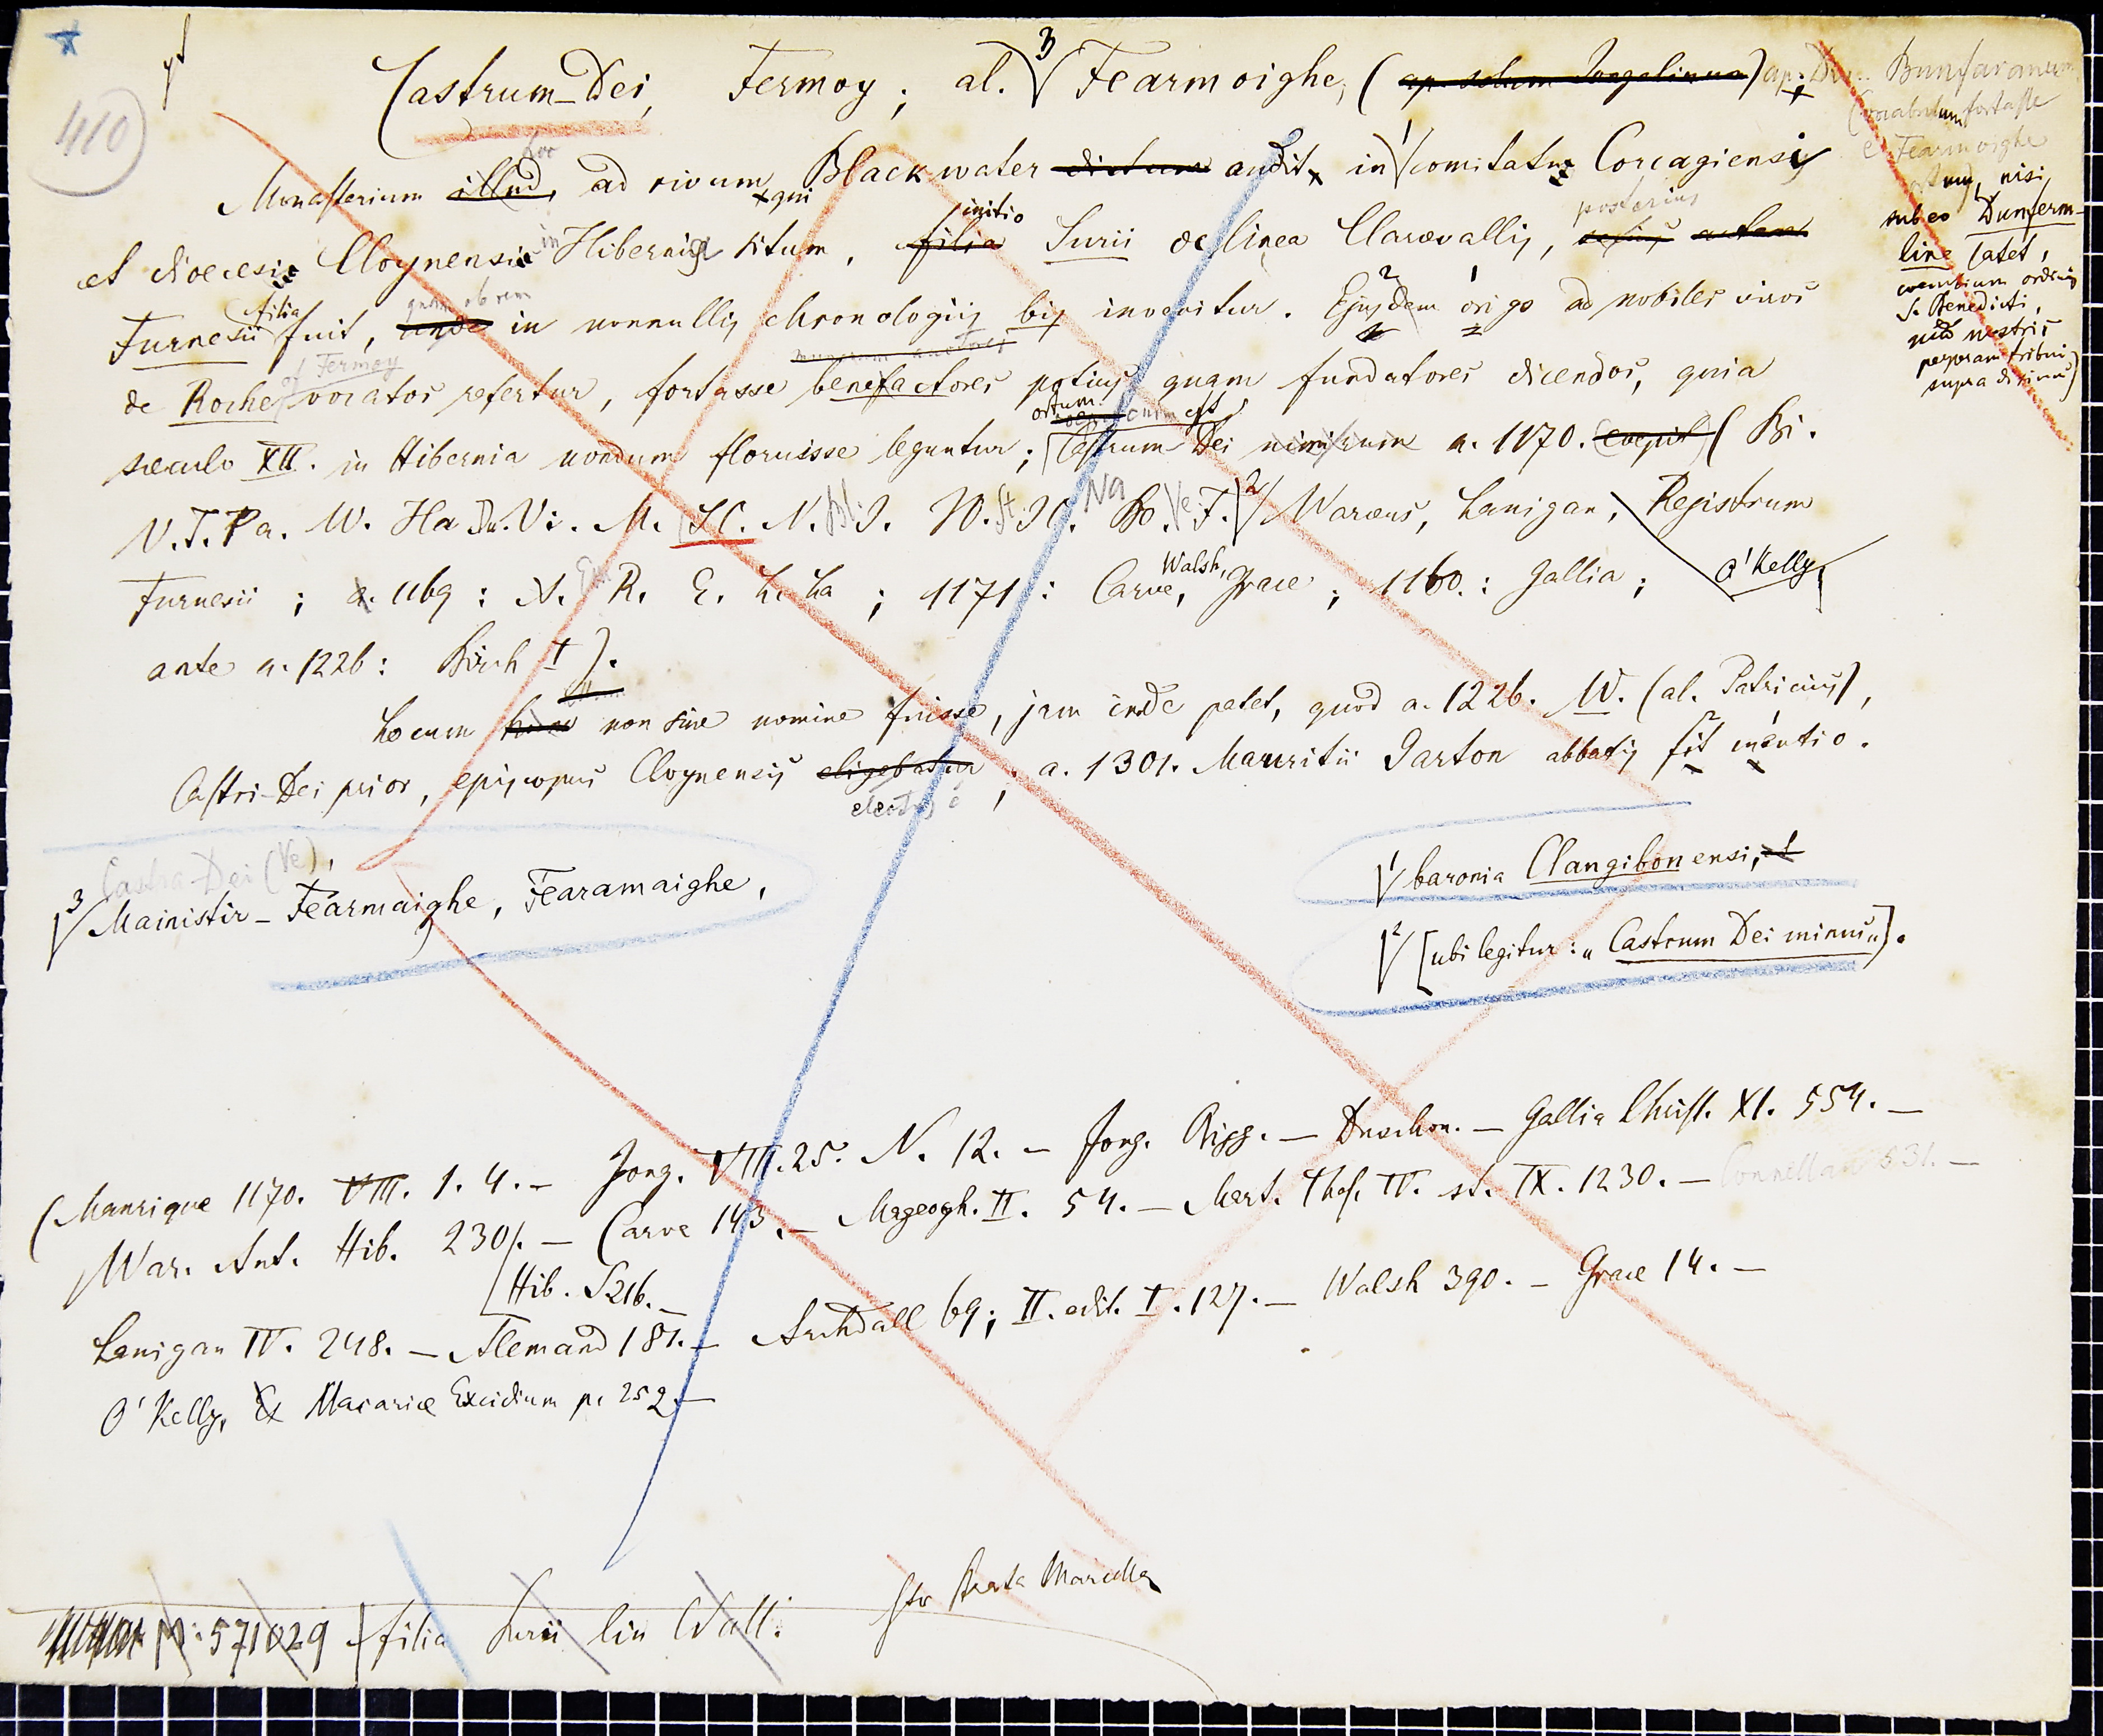 410
Castrum-Dei, Fermoy; al. 3 Fearmoighe, (ap. solum Jongelinum) ap. Bunfaranum
(vocabulum fortasse
e Fearmoighe
nisi
sub eo Dunferm-
line latet,
coenobium ordinis
S. Benedicti,
nostris
perperam tribui
supra diximus)
Monasterium illud, hoc ad rivum, qui Blackwater dictum audit, in 1 comitatu Corcagiensi
et dioecesi Cloynensi in Hibernia situm, filia initio Surii de linea Claraevallis, posterius
Furnesii filia fuit, unde quam ob rem in nonnullis chronologiis bis invenitur. Ejusdem 2 origo 1 ad nobiles viros
de Roche of Fermoy vocatos refertur, fortasse benefactores potius quam fundatores dicendos, quia
saeculo XII. in Hibernia nondum floruisse leguntur; Castrum Dei ortum enim est nimirum a. 1170. coepit (Bi.
V. T. Pa. W. Ha Du. Vi. M. SC. N. Bl. J. W. St. Na Bo. Ve F. 2 Waraeus, Lanigan, Registrum
Furnesii; a. 1169: N. R. E. L. La; 1171: Carve, Walsh, Grace; 1160.: Gallia; O'Kelly,
ante a. 1226: Birch I).
Locum non sine nomine fuisse, jam inde patet, quod a. 1226. W. (al. Patricius),
Castri-Dei prior, episcopus Cloynensis eligebatur electus e; a. 1301. Mauritii Garton abbatis fit 2 mentio 1.
Castra-Dei (Ve),
3 Mainistir-Fearmaighe, Fearamaighe,
1 baronia Clangibonensi, et
2 [ubi legitur: „Castrum Dei minus"].
(Manrique 1170. VIII. 1. 4. — Jong. VIII. 25. N. 12. — Jong. Rigg. — Duschon. — Gallia Christ. XI. 554. —
War. Ant. Hib. 230. — Carve 143. — Mageogh. II. 54. — Mart. Thes. IV. st. IX. 1230. — Connellan 531. —
Hib. S 216. —
Lanigan IV. 248. — Alemand 181. — Archdall 69; II. edit. I. 127. — Walsh 390. — Grace 14. —
O'Kelly, Macariae Excidium p. 252. —
N: 571029 filia Surii lin Cl
Strata Marcella